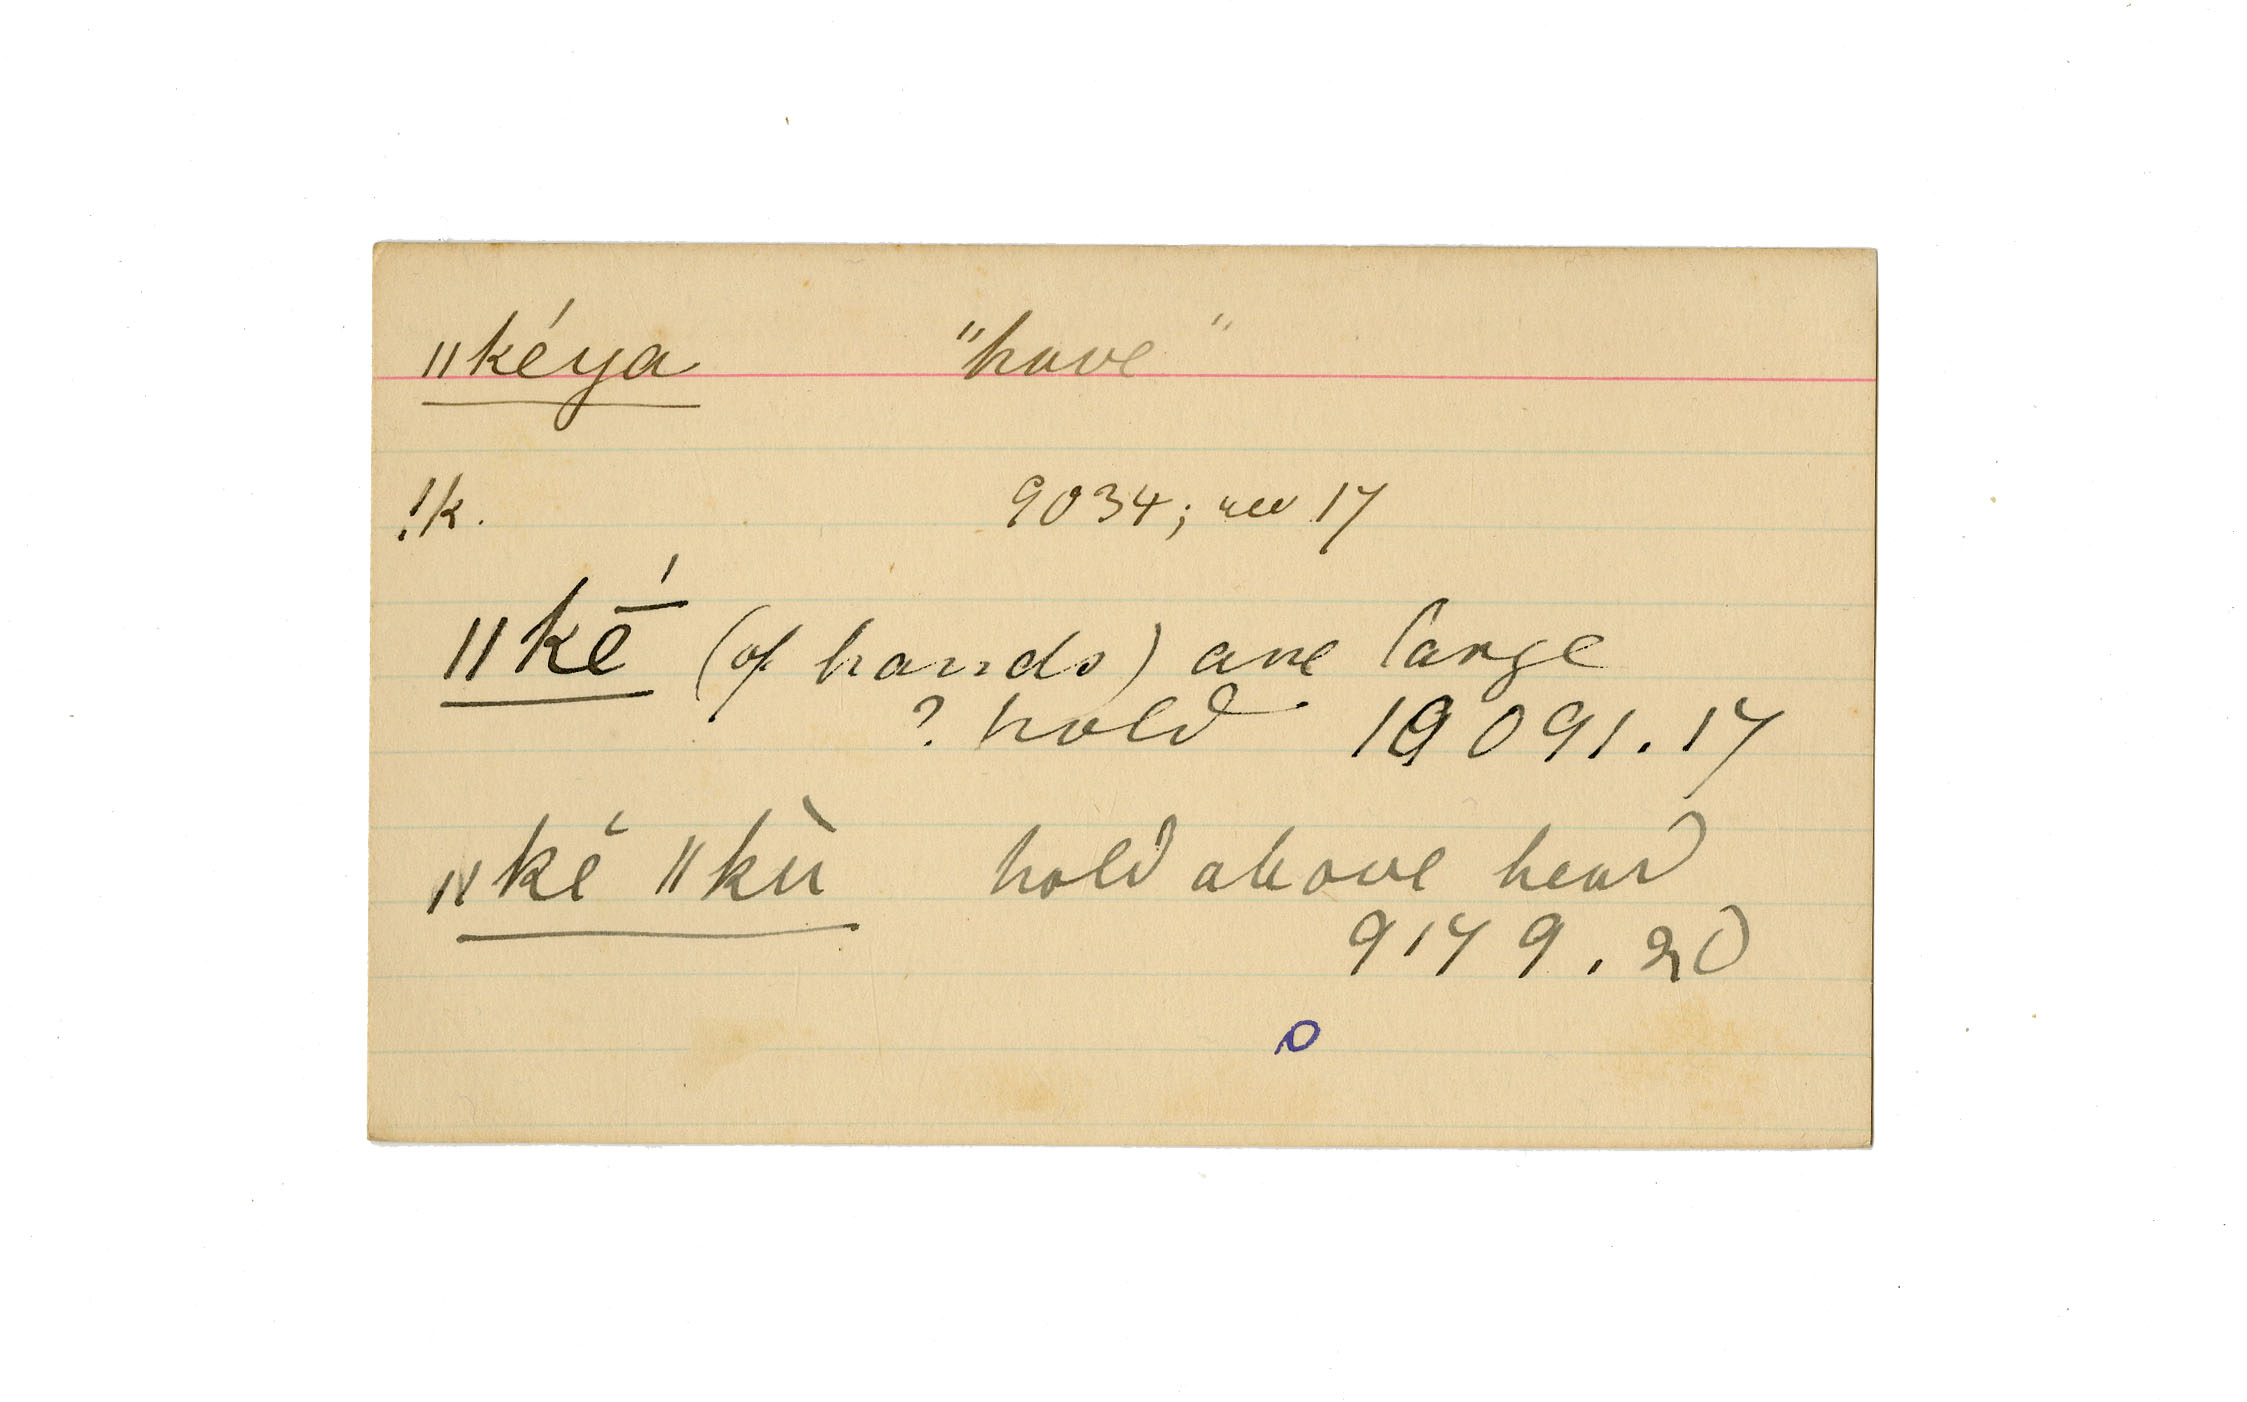 ǁkéya "have"
!k. 9034; rev 17
ǁkḗ (of hands) are large
? hold 19091.17
ǁkē̆ ǁkù hold above head
9179.20